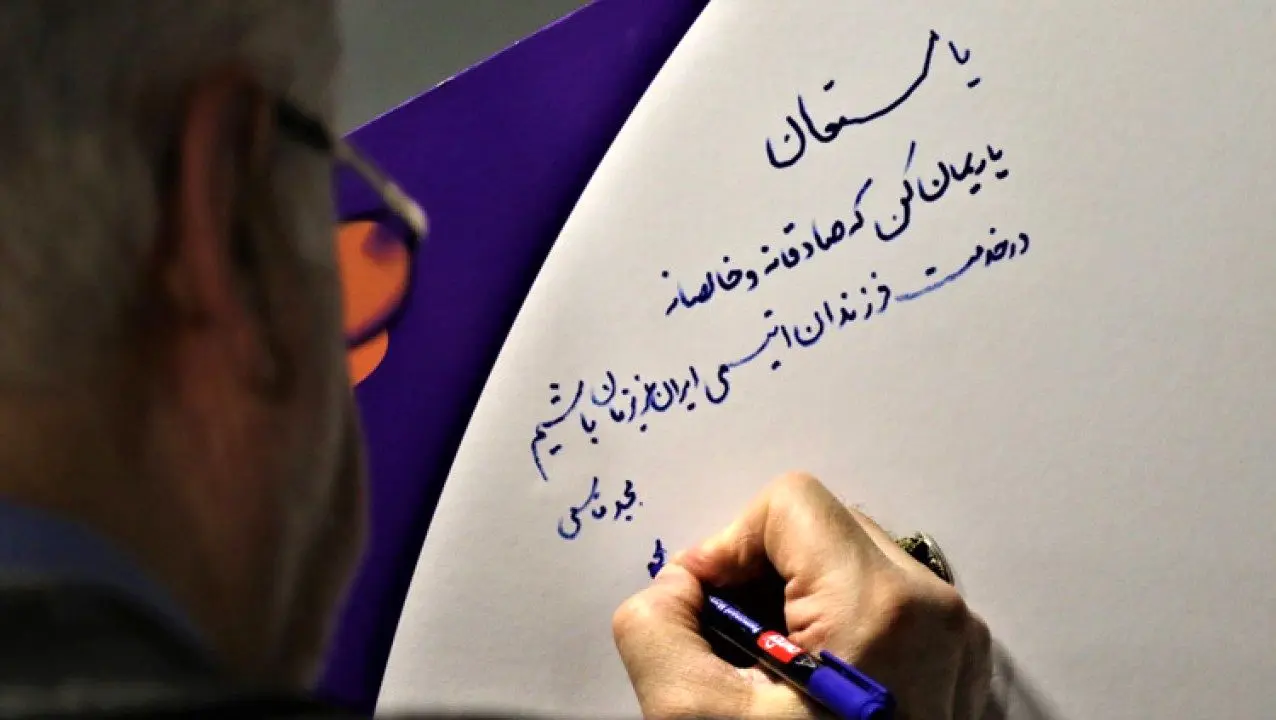 یا مستعان
یاریمان کن که صادقانه و خالصانه
در خدمت فرزندان اتیسمی ایران عزیزمان باشیم
مجید قاسمی